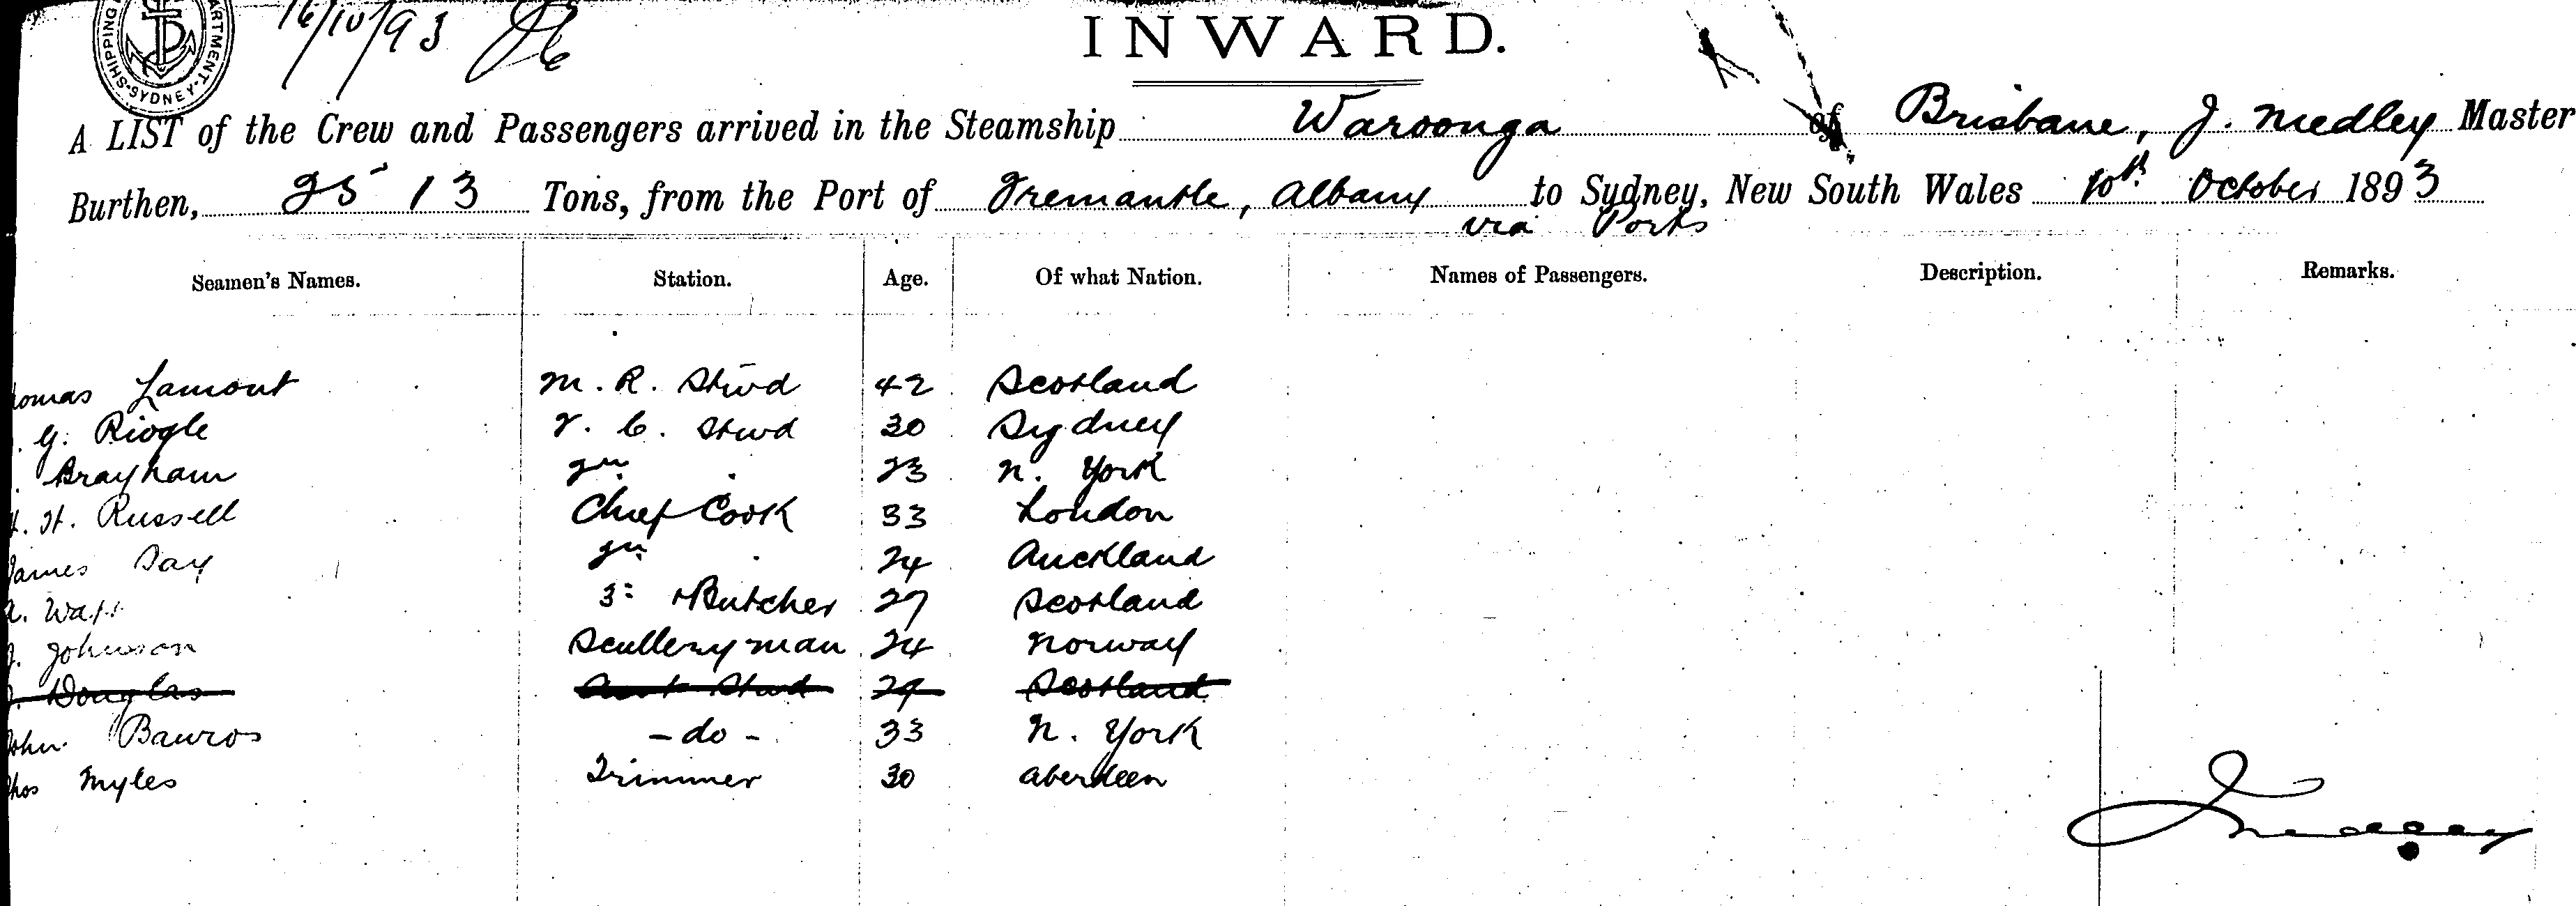 SHIPPING DEPARTMENT SYDNEY
16/10/93
INWARD.
A LIST of the Crew and Passengers arrived in the Steamship Waroonga of Brisbane, J. Medley Master
Burthen, 2513 Tons, from the Port of Fremantle, Albany to Sydney, New South Wales 10th October 1893
via Ports
Seamen's Names. Station. Age. Of what Nation. Names of Passengers. Description. Remarks.
homas Lamont M. R. Stwd 42 Scotland
G. Stwd 30 Sydney
Brayham 23 N. York
H. Russell Chief Cook 33 London
James Day 24 Auckland
A. Watt 3 Butcher 27 Scotland
J. Johnson Scullery man 24 Norway
Douglas Asst Stwd 29 Scotland
John - do - 33 N. York
hos Myles Trimmer 30 Aberdeen
J Medley